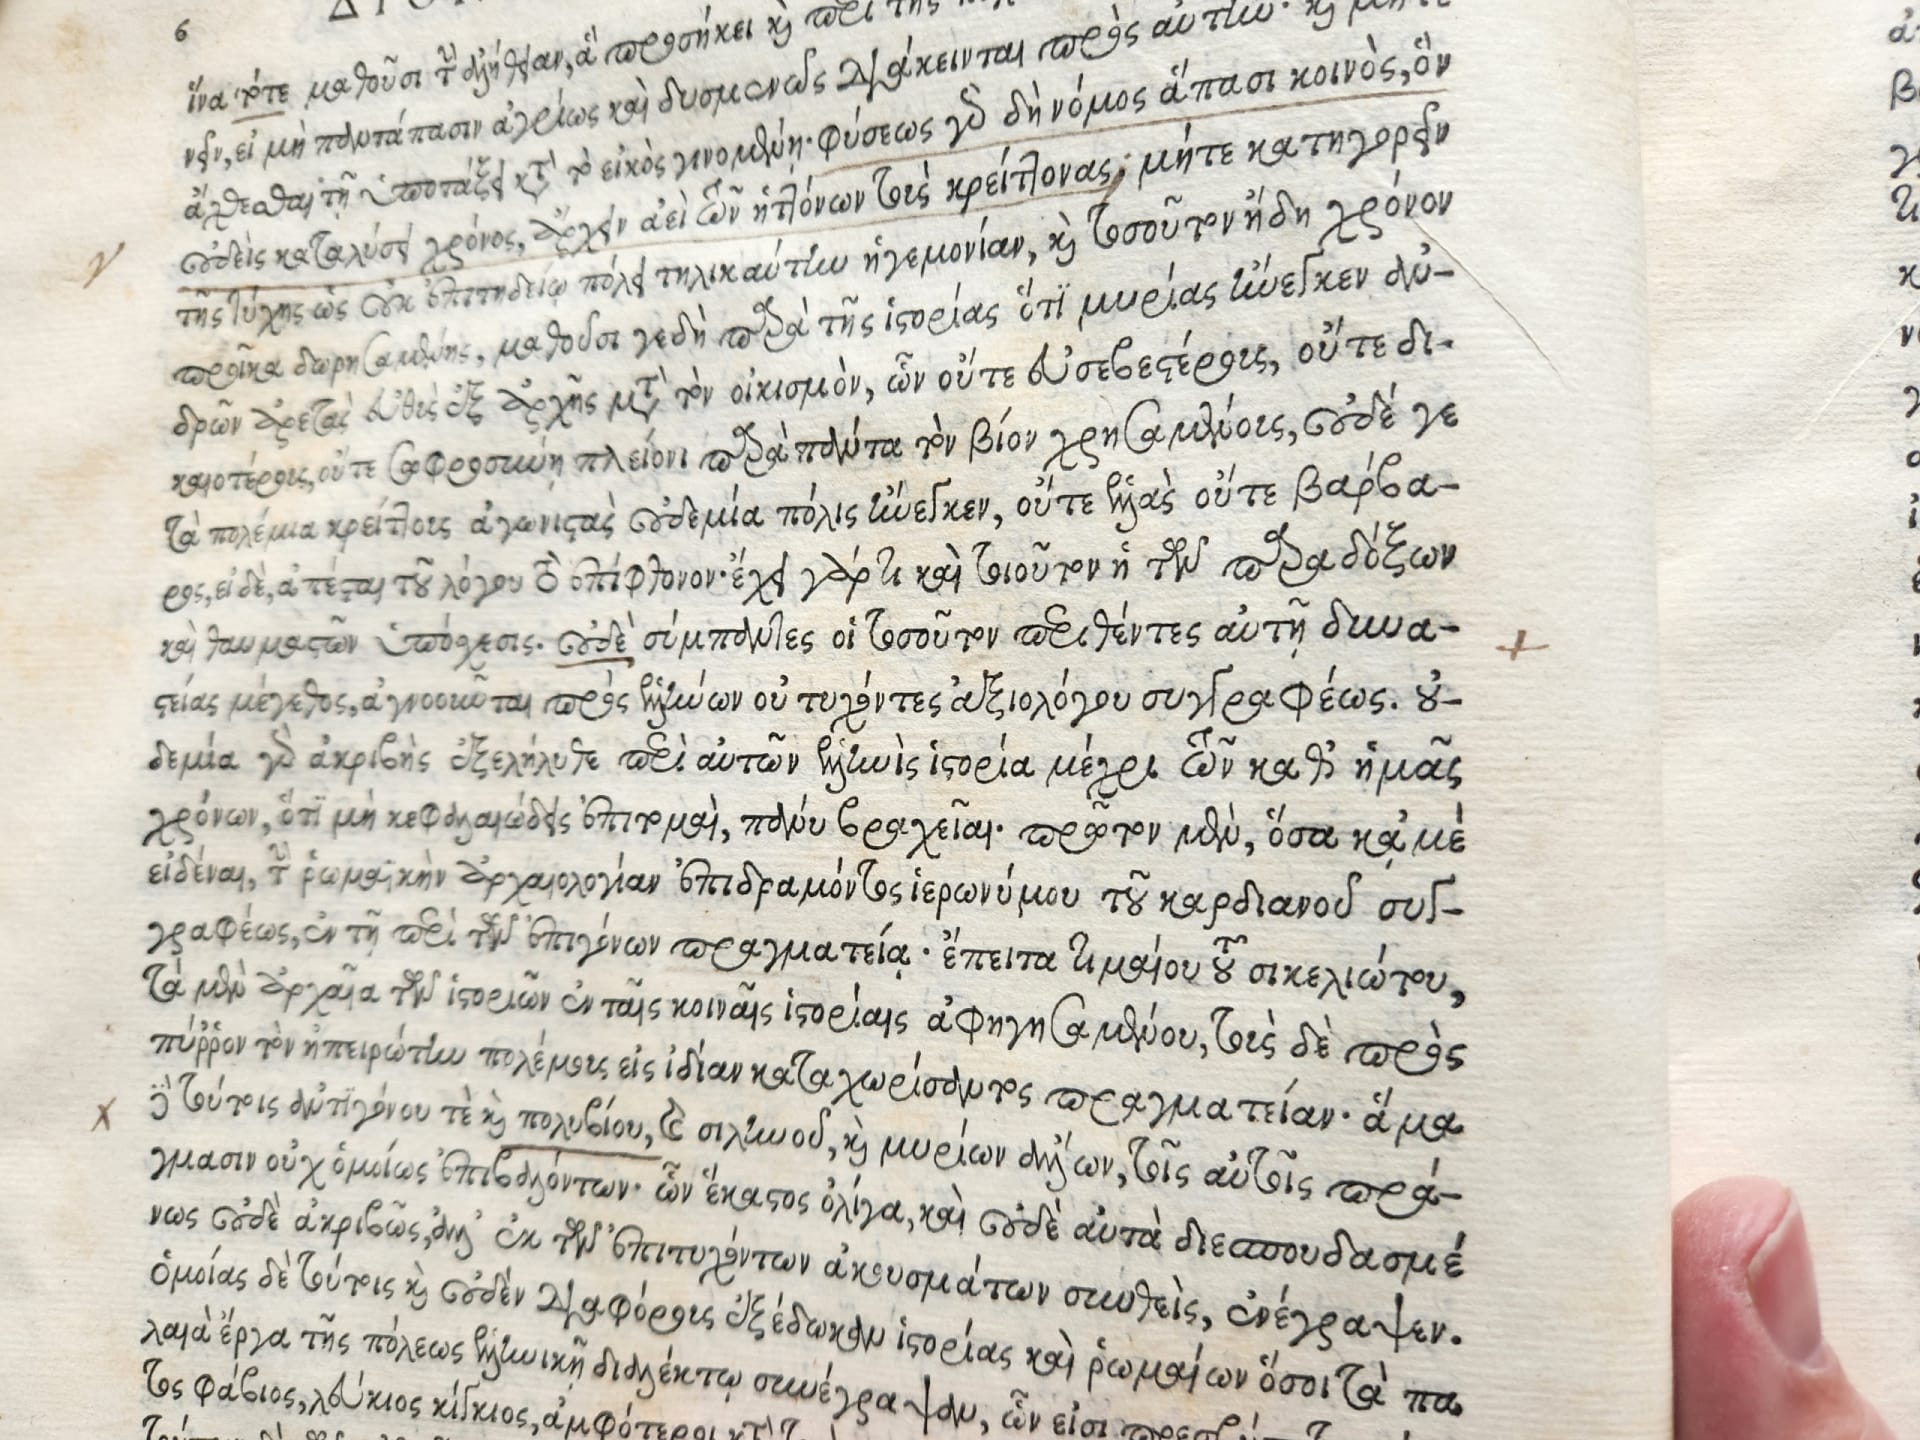 6
ἵνα τότε μαθοῦσι τὴν ἀλήθειαν, ἃ προσήκει καὶ περὶ τῆς
νειν, εἰ μὴ παντάπασιν ἀγρίως καὶ δυσμενῶς διάκεινται πρὸς αὐτὴν. καὶ μήτε
ἄχθεσθαι τῇ ὑποτάξει κατὰ τὸ εἰκὸς γινομένῃ. φύσεως γὰρ δὴ νόμος ἅπασι κοινὸς, ὃν
οὐδεὶς καταλύσει χρόνος, ἄρχειν ἀεὶ τῶν ἡττόνων τοὺς κρείττονας. μήτε κατηγορεῖν
τῆς τύχης ὡς οὐκ ἐπιτηδείῳ πόλει τηλικαύτην ἡγεμονίαν, καὶ τοσοῦτον ἤδη χρόνον
προῖκα δωρησαμένης, μαθοῦσι γε δὴ παρὰ τῆς ἱστορίας ὅτι μυρίας ἤνεγκεν ἀν-
δρῶν ἀρετὰς εὐθὺς ἐξ ἀρχῆς μετὰ τὸν οἰκισμὸν, ὧν οὔτε εὐσεβεστέρους, οὔτε δι-
καιοτέρους, οὔτε σωφροσύνῃ πλείονι παρὰ πάντα τὸν βίον χρησαμένους, οὐδέ γε
τὰ πολέμια κρείττους ἀγωνιστὰς οὐδεμία πόλις ἤνεγκεν, οὔτε ἑλλὰς οὔτε βάρβα-
ρος, εἰ δὲ, ἀπέσται τοῦ λόγου τὸ ἐπίφθονον. ἔχει γάρ τι καὶ τοιοῦτον ἡ τῶν παραδόξων
καὶ θαυμαστῶν ὑπόσχεσις. οὐδὲ σύμπαντες οἱ τοσοῦτον περιθέντες αὐτῇ δυνα-
στείας μέγεθος, ἀγνοοῦνται πρὸς ἑλλήνων οὐ τυχόντες ἀξιολόγου συγγραφέως. οὐ-
δεμία γὰρ ἀκριβὴς ἐξελήλυθε περὶ αὐτῶν ἑλληνὶς ἱστορία μέχρι τῶν καθ' ἡμᾶς
χρόνων, ὅτι μὴ κεφαλαιώδεις ἐπιτομαὶ, πάνυ βραχεῖαι. πρῶτον μὲν, ὅσα κᾀμὲ
εἰδέναι, τὴν ῥωμαϊκὴν ἀρχαιολογίαν ἐπιδραμόντος ἱερωνύμου τοῦ καρδιανοῦ συγ-
γραφέως, ἐν τῇ περὶ τῶν ἐπιγόνων πραγματείᾳ. ἔπειτα τιμαίου τοῦ σικελιώτου,
τὰ μὲν ἀρχαῖα τῶν ἱστοριῶν ἐν ταῖς κοιναῖς ἱστορίαις ἀφηγησαμένου, τοὺς δὲ πρὸς
πύῤῥον τὸν ἠπειρώτην πολέμους εἰς ἰδίαν καταχωρίσαντος πραγματείαν. ἅμα
δὲ τούτοις ἀντιγόνου τὲ καὶ πολυβίου, καὶ σιληνοῦ, καὶ μυρίων ἄλλων, τοῖς αὐτοῖς πρά-
γμασιν οὐχ ὁμοίως ἐπιβαλόντων. ὧν ἕκαστος ὀλίγα, καὶ οὐδὲ αὐτὰ διεσπουδασμέ
νως οὐδὲ ἀκριβῶς, ἀλλ' ἐκ τῶν ἐπιτυχόντων ἀκουσμάτων συνθεὶς, ἀνέγραψεν.
ὁμοίας δὲ τούτοις καὶ οὐδὲν διαφόρους ἐξέδωκαν ἱστορίας καὶ ῥωμαίων ὅσοι τὰ πα
λαιὰ ἔργα τῆς πόλεως ἑλληνικῇ διαλέκτῳ συνέγραψαν, ὧν εἰσι πρεσβύτ
τος φάβιος, λεύκιος κίγκιος, ἀμφότεροι κατὰ